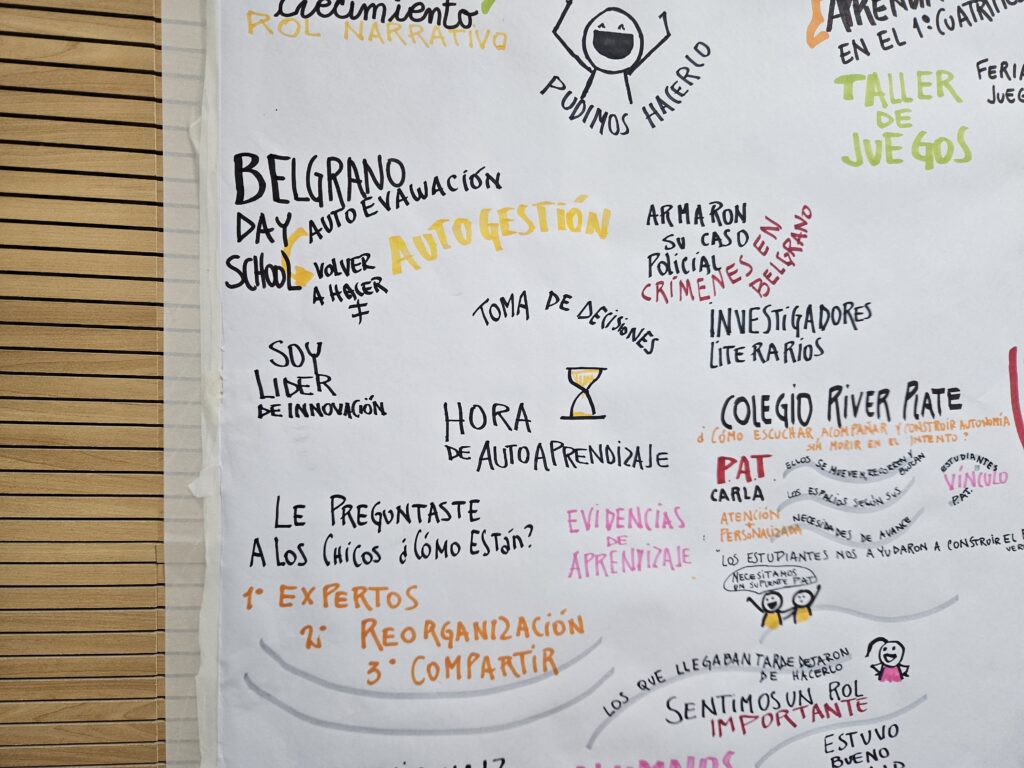 Crecimiento
ROL NARRATIVO
PUDIMOS HACERLO
EN EL 1º CUATRI
TALLER
DE
JUEGOS
FERIA
JUEG
BELGRANO
DAY
SCHOOL
AUTOEVAWACIÓN
VOLVER
A HACER
AUTOGESTIÓN
ARMARON
SU CASO
POLICIAL
CRÍMENES EN
BELGRANO
TOMA DE DECISIONES
INVESTIGADORES
LITERARIOS
SOY
LIDER
DE INNOVACIÓN
HORA
DE AUTOAPRENDIZAJE
COLEGIO RIVER PLATE
¿CÓMO ESCUCHAR ACOMPAÑAR Y CONSTRUIR AUTONOMÍA
SIN MORIR EN EL INTENTO?
PAT
CARLA
ATENCIÓN
+
PERSONALIZADA
ELLOS SE MUEVEN, RECORREN Y BUSCAN
LOS ESPACIOS SEGÚN SUS
NECESIDADES DE AVANCE
ESTUDIANTES
VÍNCULO
PAT.
LE PREGUNTASTE
A LOS CHICOS ¿CÓMO ESTÁN?
EVIDENCIAS
DE
APRENDIZAJE
"LOS ESTUDIANTES NOS AYUDARON A CONSTRUIR EL
NECESITAMOS
UN SUPLENTE PAT
1º EXPERTOS
2º REORGANIZACIÓN
3º COMPARTIR
LOS QUE LLEGABAN TARDE DEJARON
DE HACERLO
SENTIMOS UN ROL
IMPORTANTE
ESTUVO
BUENO
ALUMNOS